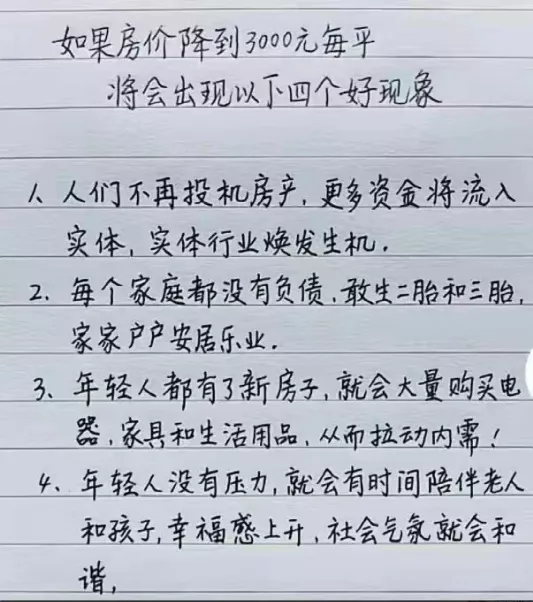 如果房价降到3000元每平
将会出现以下四个好现象
1、人们不再投机房产，更多资金将流入
实体，实体行业焕发生机．
2、每个家庭都没有负债，敢生二胎和三胎，
家家户户安居乐业．
3、年轻人都有了新房子，就会大量购买电
器，家具和生活用品，从而拉动内需！
4、年轻人没有压力，就会有时间陪伴老人
和孩子，幸福感上升，社会气氛就会和
谐，